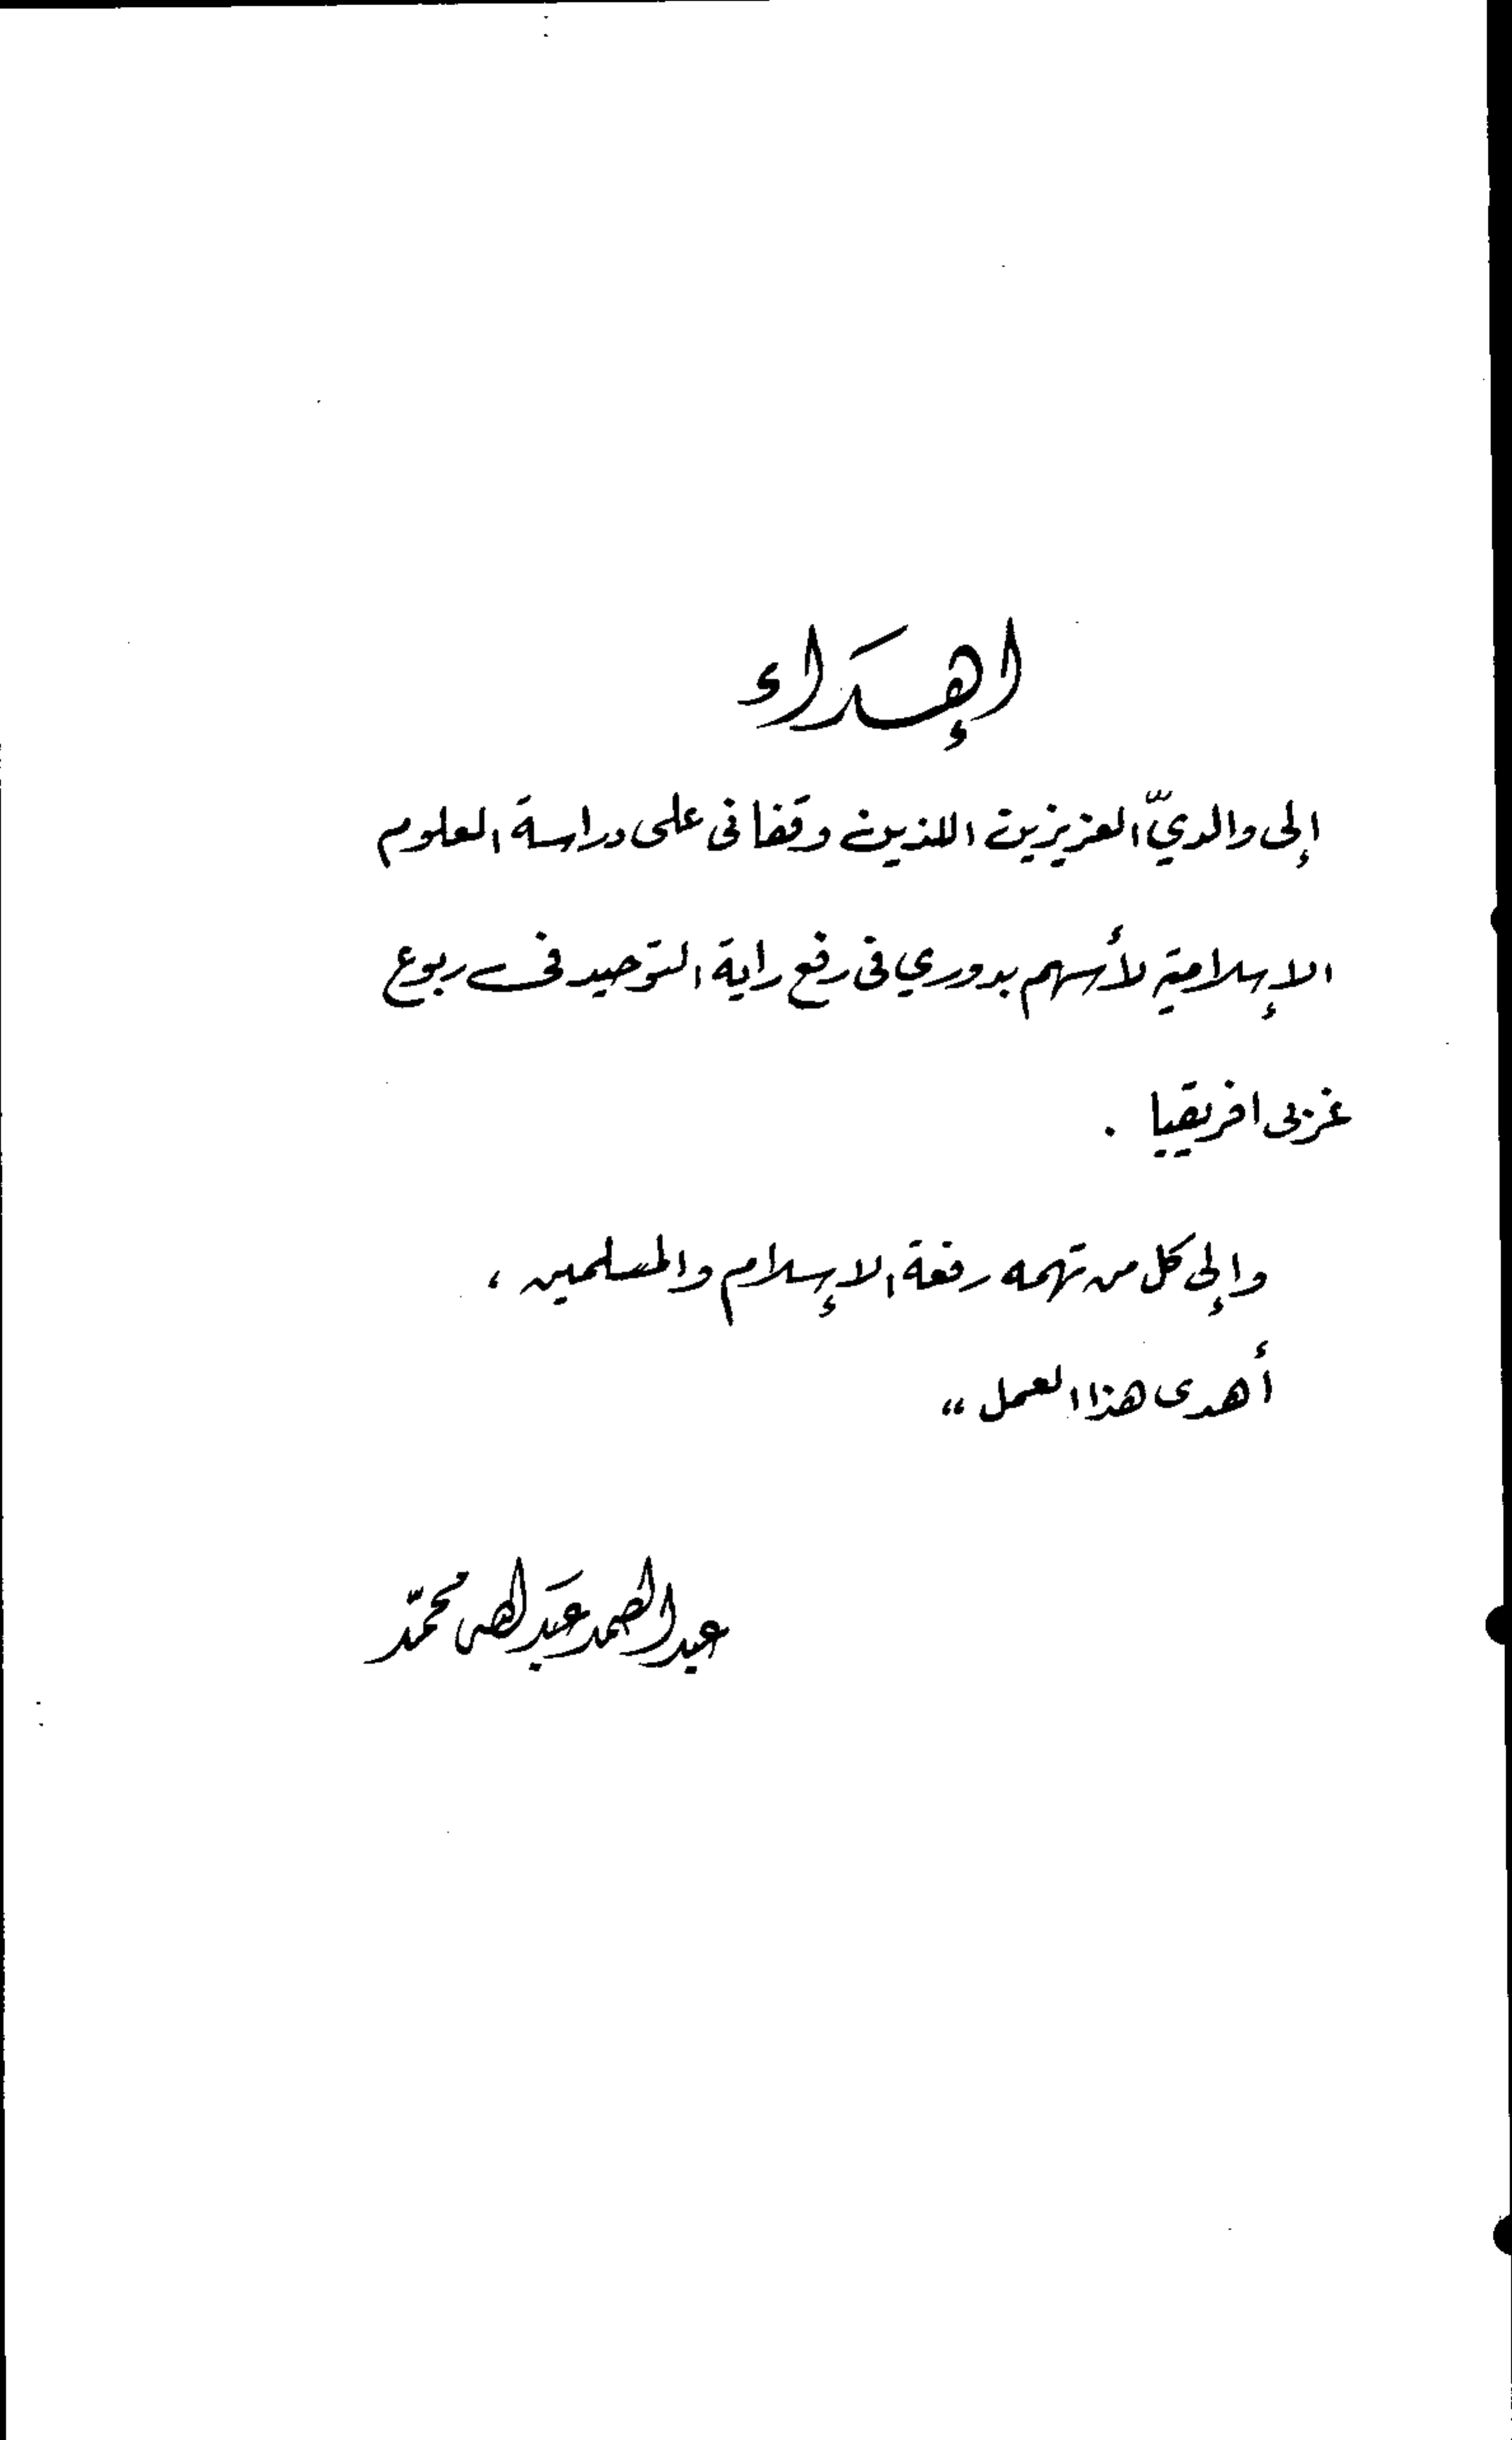 إهدَاء
إلى والديّ العزيزين اللذين وقفانى على دراسة العلوم
الإسلامية لأسهم بدوري فى رفع راية التوحيد فى ربوع
غربى افريقيا .
وإلى كل من تهمه رفعة الإسلام والمسلمين ،
أهدى هذا العمل ،،
عبد الصمد عَبد محمّد